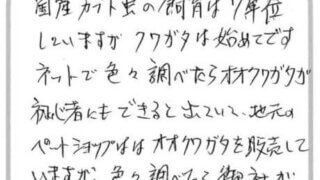 国産カブト虫の飼育は7年位
していますが クワガタは始めてです
ネットで色々調べたらオオクワガタが
初心者にもできると出ていて、地元の
ペットショップはは オオクワガタを販売して
いますが、色々調べたら御社が